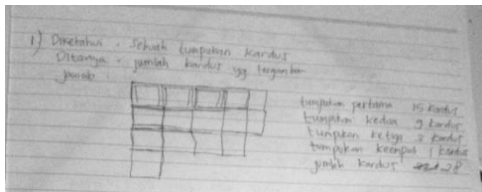 1) Diketahui - Sebuah tumpukan kardus
Ditanya - jumlah kardus yg tergambar
jawab
tumpukan pertama 15 kardus
tumpukan kedua 9 kardus
tumpukan ketiga 3 kardus
tumpukan keempat 1 kardus
jumlah kardus 28